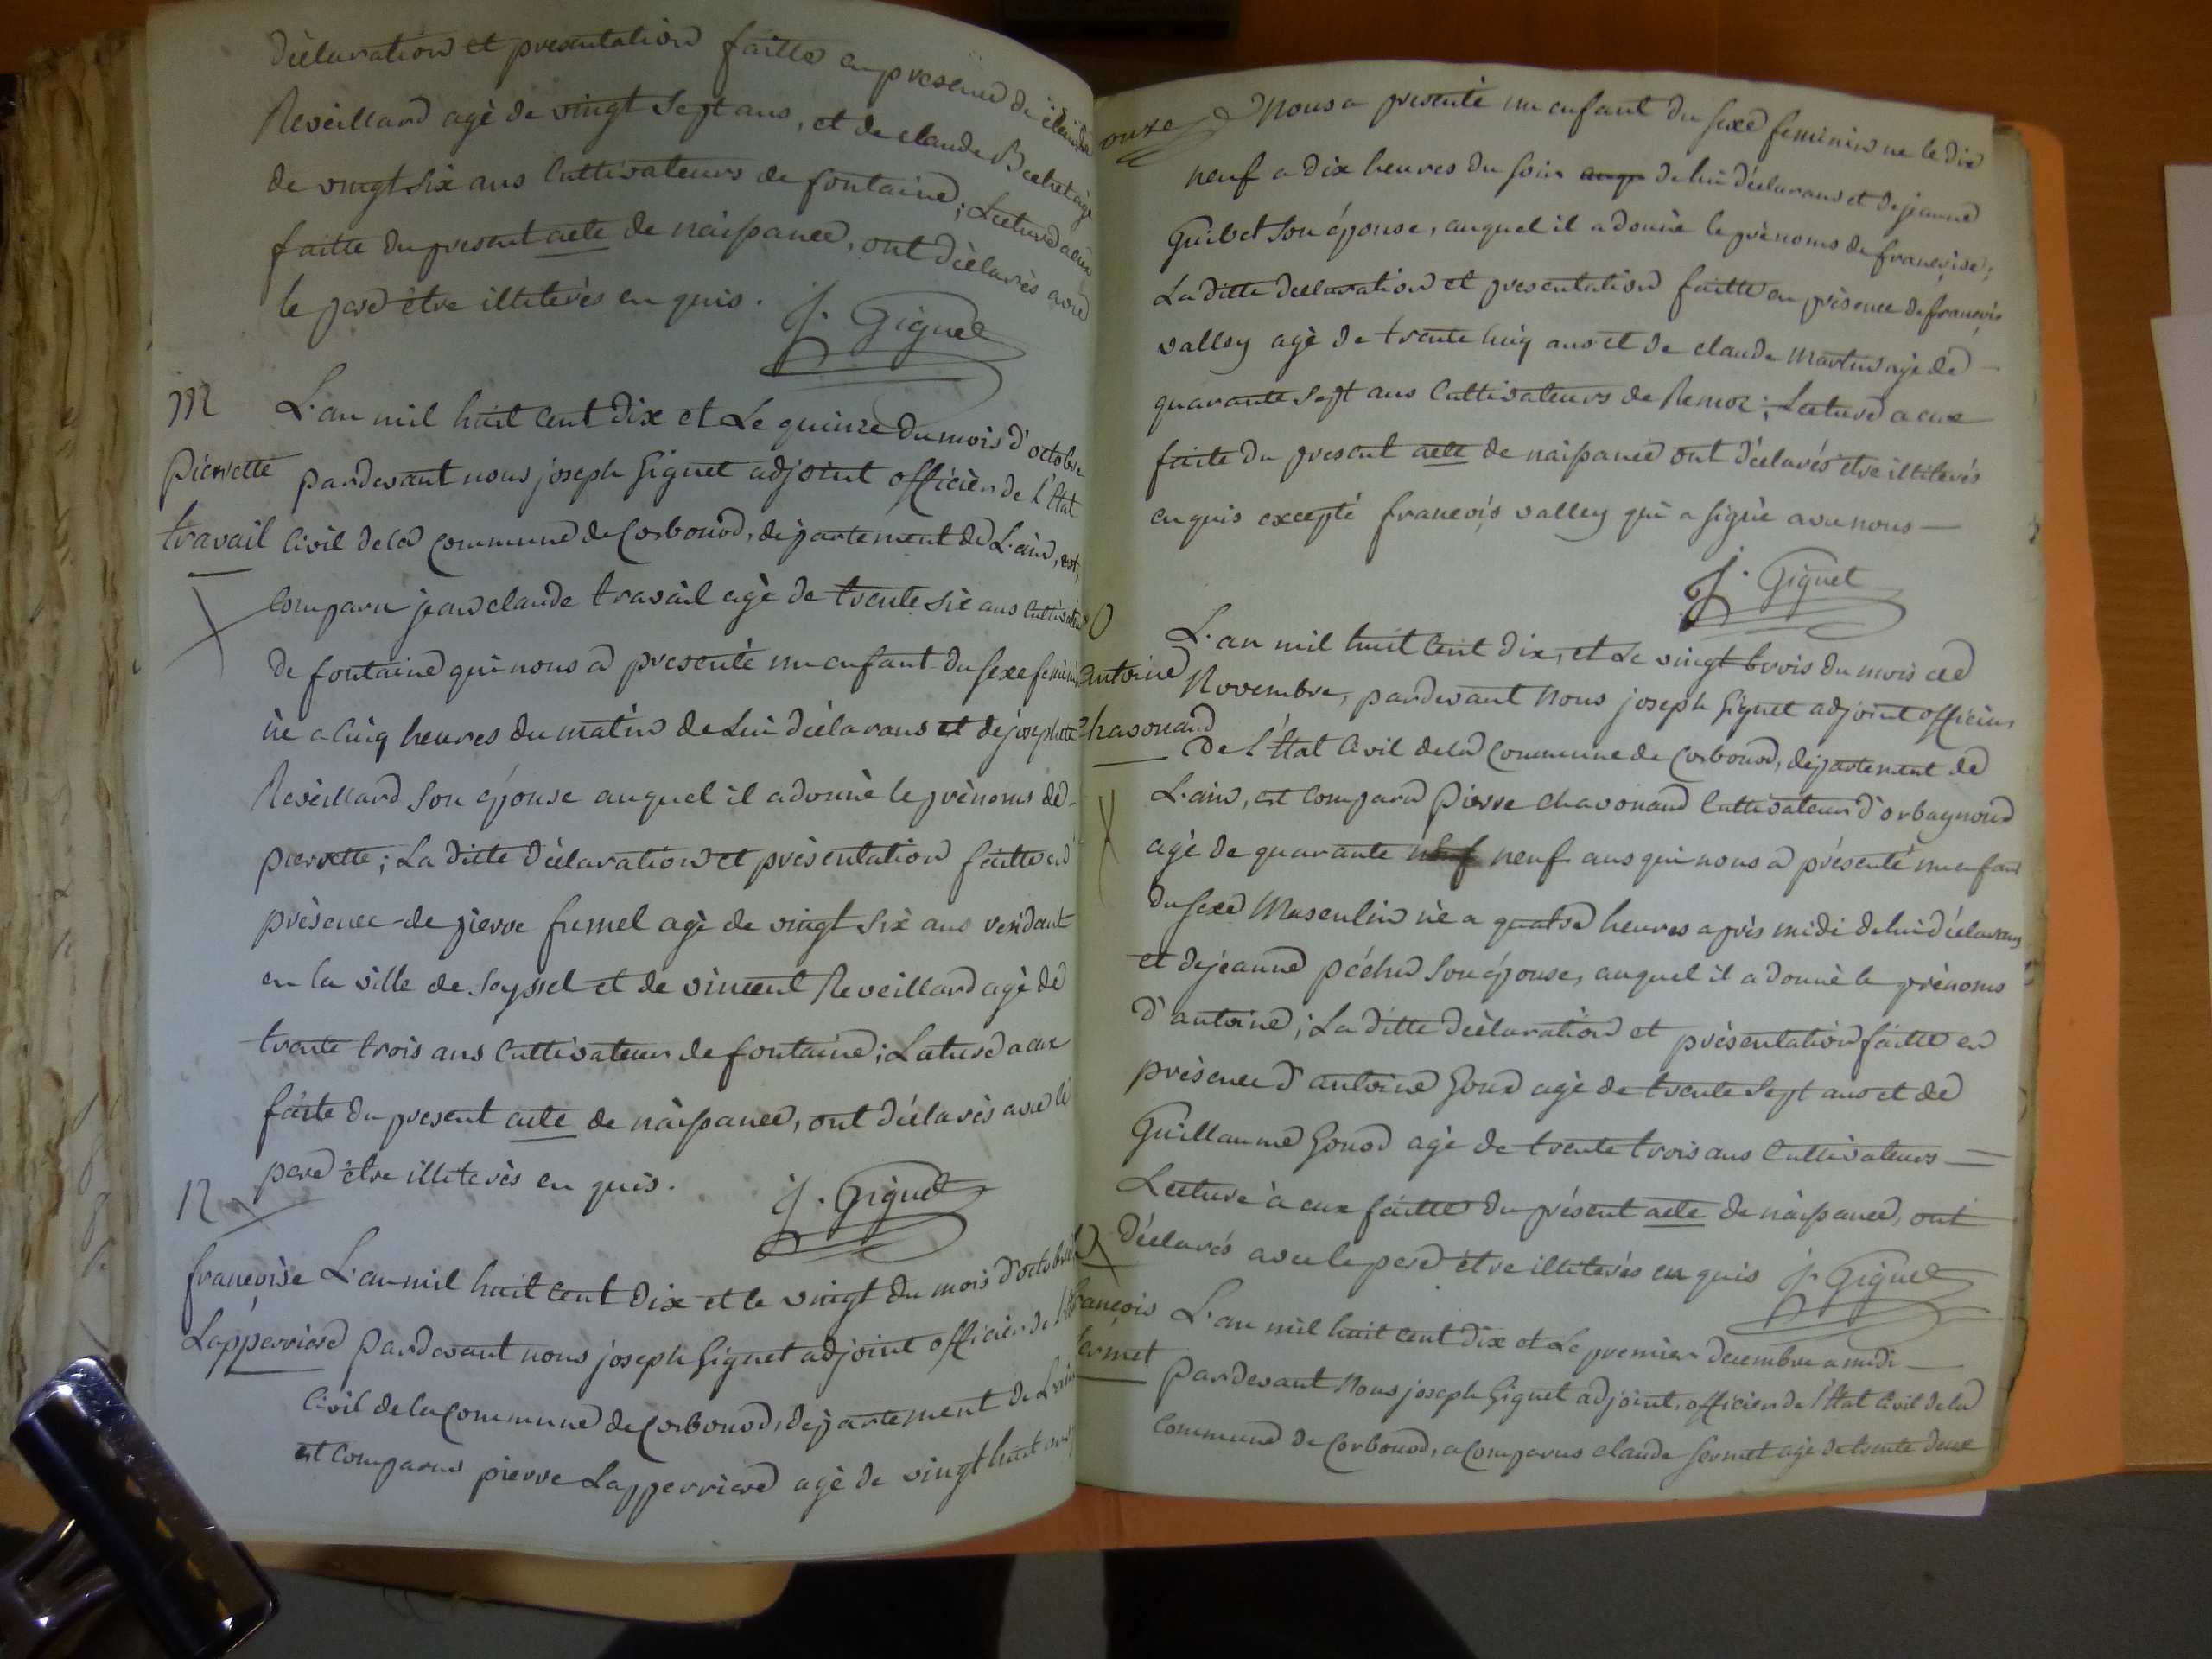 déclaration et presentation faitte en presence de claude
Reveillard agè de vingt sept ans, et de claude Bechet agè
de vingt six ans Cultivateurs de fontaine; Lecture a eux
faitte du present acte de naissance, ont dèclarès avec
le pere être illiterès enquis. J. Giguet
M
Pierrette
travail
L'an mil huit cent dix et Le quinze du mois d'octobre
pardevant nous joseph Giguet adjoint officièr de l'Etat
Civil de la Commune de Corbonod, departement de L'ain, est,
Comparu jean claude travail agè de trente six ans Cultivateur
de fontaine qui nous a presentè un enfant du sexe feminin
nè a Cinq heures du matin de Lui dèclarans et de josephte
Revèillard son èpouse auquel il a donnè le prènoms de
pierrette; La ditte dèclaration et prèsentation faitte en
prèsence de pierre fumel agè de vingt six ans
en la ville de Seyssel et de vincent Reveillard agè de
trente trois ans Cultivateur de fontaine; Lecture a eux
faite du present acte de naissance, ont déclarès avec le
pere être illiterès en quis. J. Giguet
N
françoise
Lapperriere
L'an mil huit cent dix et le vingt du mois d'octobre
pardevant nous joseph Giguet adjoint officièr de l'Etat
Civil de la Commune de Corbonod, département de L'ain
est Comparus pierre Lapperriere agè de vingt huit ans
onze
Nous a presenté un enfant du sexe feminin ne le dix
neuf a dix heures du soir de lui déclarans et de jeanne
Guibet son épouse, auquel il a donnè le prènoms de françoise;
La ditte declaration et presentation faitte en prèsence de françois
valley agè de trente huig ans et de claude Martin agè de
quarante sept ans Cultivateurs de Remoz; Lecture a eux
faite du present acte de naissance ont déclarés être illiterés
enquis excepté françois valley qui a signè avec nous
J. Giguet
O
antoine
Chavonand
L'an mil huit cent dix, et Le vingt trois du mois de
Novembre, pardevant Nous joseph Giguet adjoint officièr
de l'Etat Civil de la Commune de Corbonod, département de
L'ain, est Comparu Pierre chavonand Cultivateur d'orbagnoud
agè de quarante neuf ans qui nous a présenté un enfant
du sexe Masculin nè a quatre heures après midi de lui déclarans
et de jeanne péchu son épouse, auquel il a donnè le prènoms
d'antoine; La ditte dèclaration et prèsentation faitte en
prèsence d'antoine Gonod agè de trente sept ans et de
Guillaume Gonod agè de trente trois ans Cultivateurs
Lecture à eux faitte du présent acte de naissance, ont
déclarés avec le pere être illiterés en quis J. Giguet
françois
Sermet
L'an mil huit cent dix et Le premier decembre a midi
pardevant Nous joseph Giguet adjoint, officier de l'Etat Civil de la
Commune de Corbonod, a Comparus claude Sermet agè de trente deux